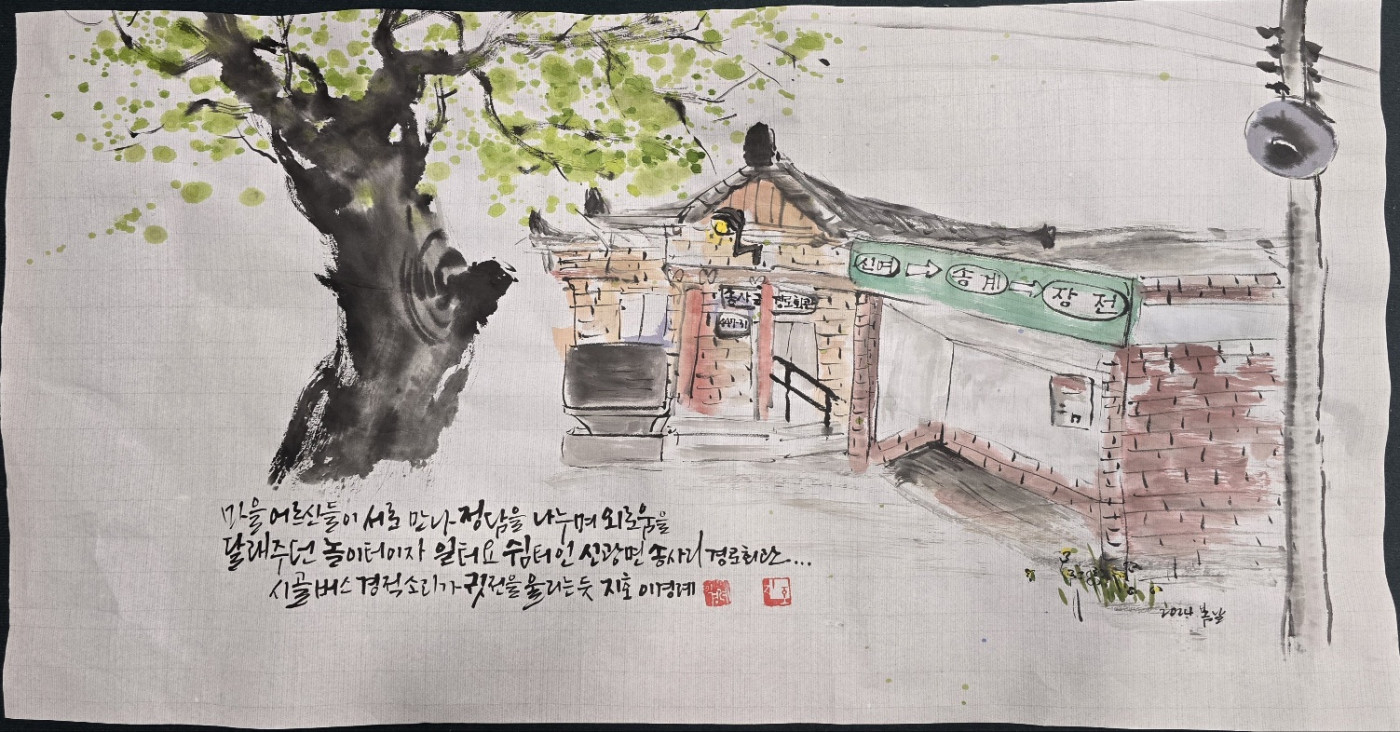 신여 ⇨ 송계 ⇨ 장전
송사리 경로회관
마을 어르신들이 서로 만나 정담을 나누며 외로움을
달래주던 놀이터이자 일터요 쉼터인 신광면 송사리 경로회관...
시골버스 경적소리가 귓전을 울리는듯 지호 이경례
지호
2024 봄날